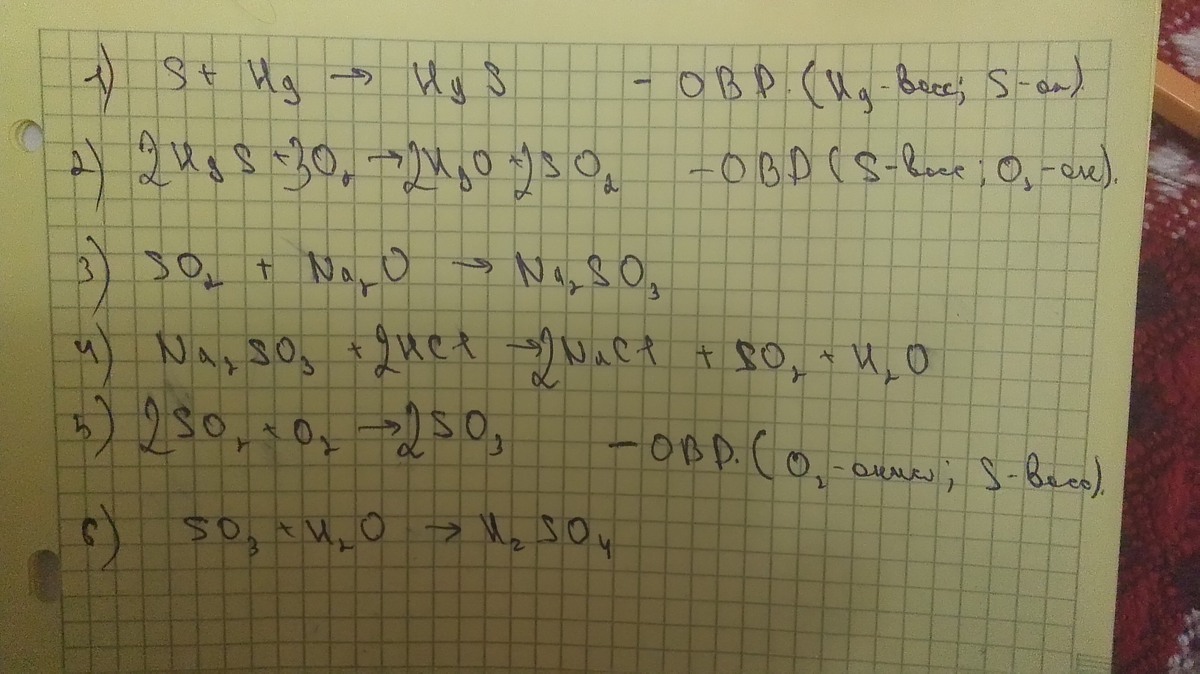 1) S + Hg → HgS - ОВР. (Hg-восс; S-ок).
2) 2HgS + 3O₂ → 2HgO + 2SO₂ - ОВР (S-восс; O₂-ок).
3) SO₂ + Na₂O → Na₂SO₃
4) Na₂SO₃ + 2HCl → 2NaCl + SO₂ + H₂O
5) 2SO₂ + O₂ → 2SO₃ - ОВР. (O₂-окисл; S-восс).
6) SO₃ + H₂O → H₂SO₄